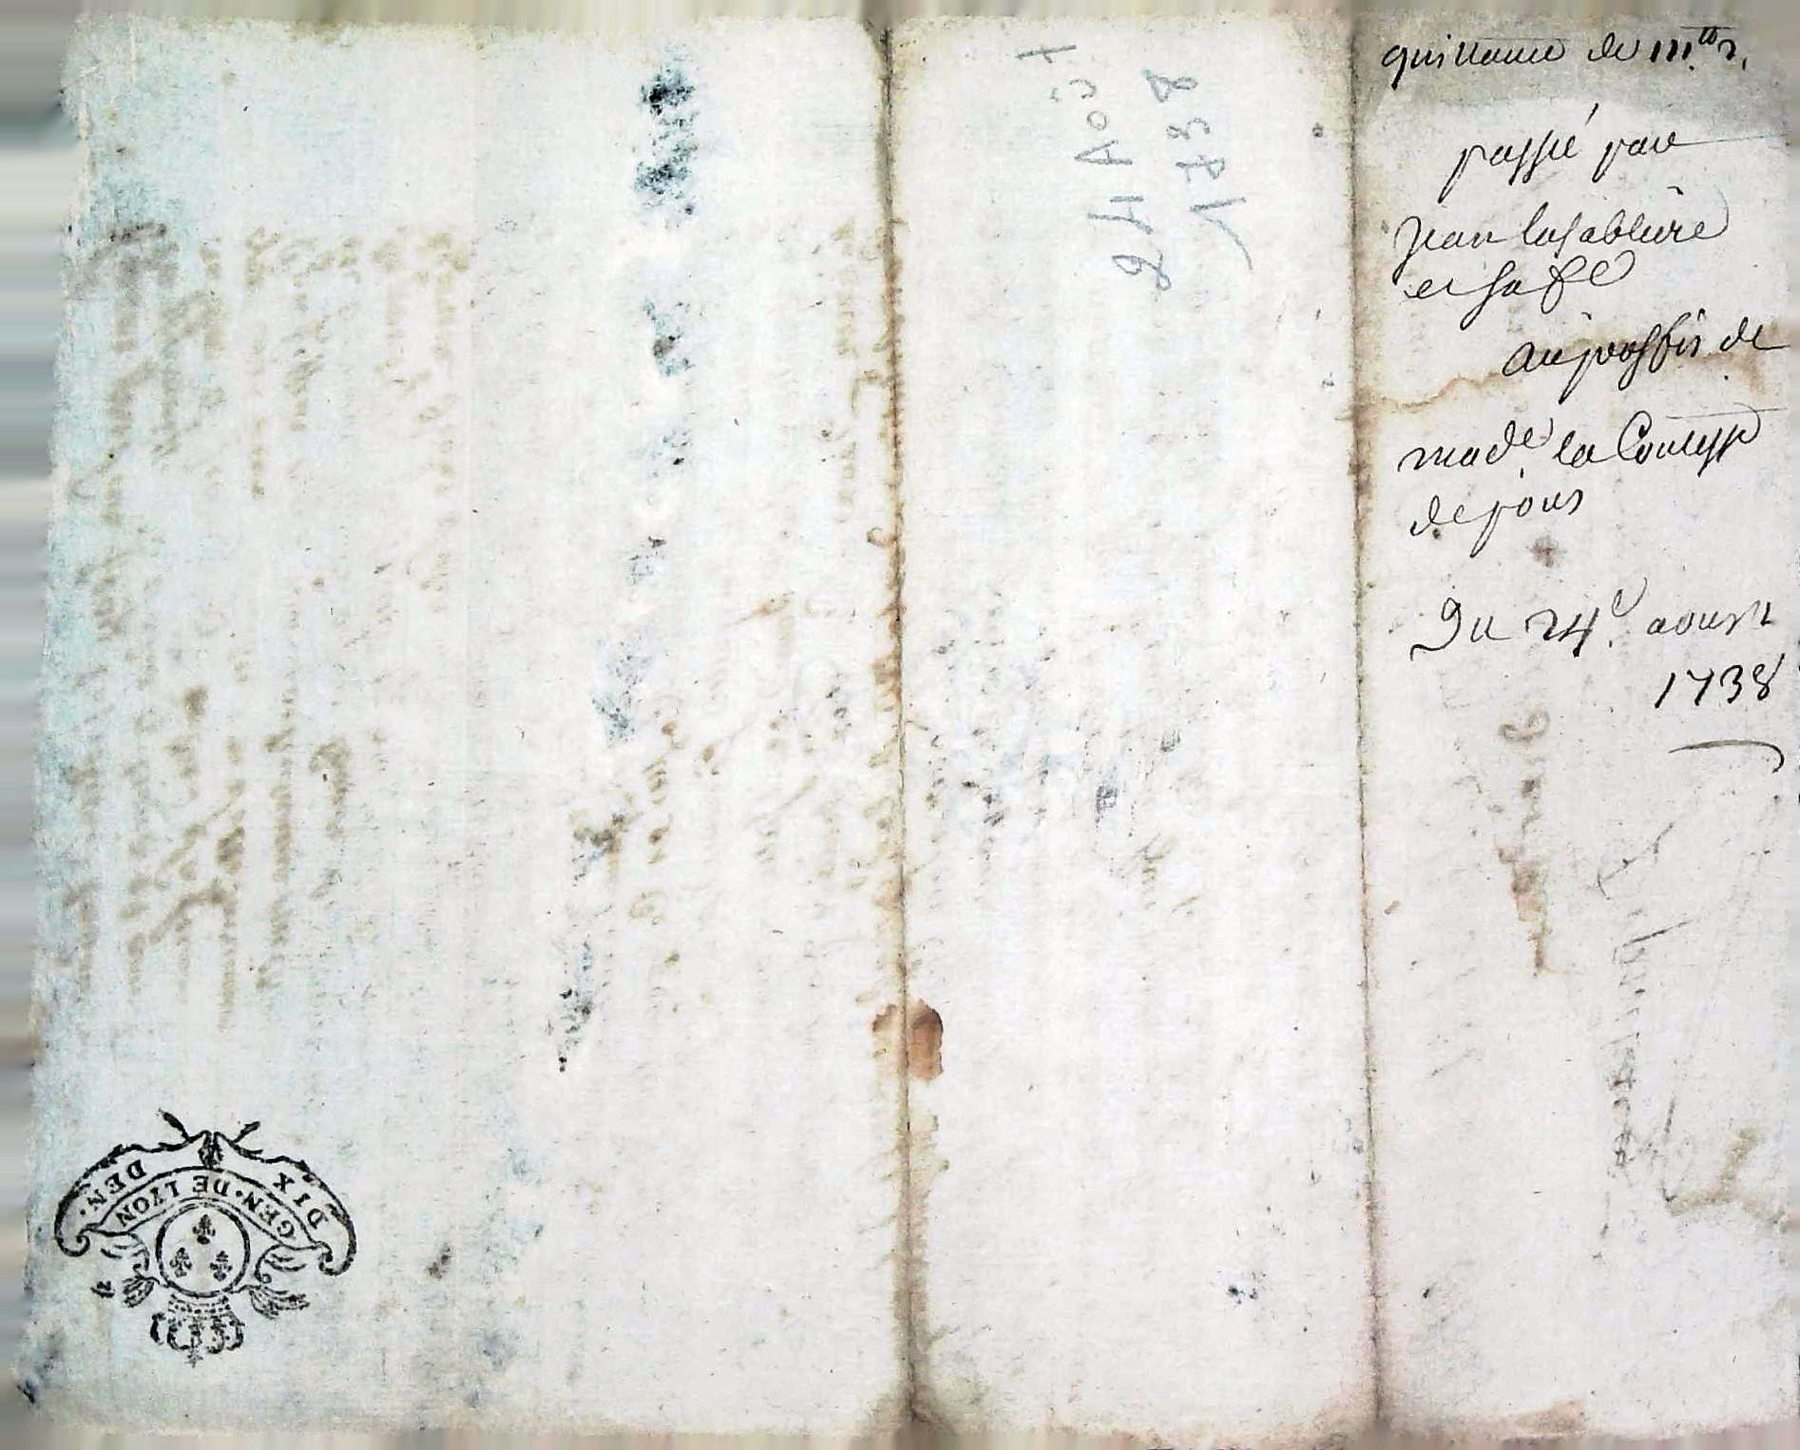 quittance de III.tt
passé par
Jean lasablière
et sa fe
au proffit de
made la Contesse
de jous
Du 24e. aoust
1738
24 Août
1738
DIX DEN.
GEN. DE LYON